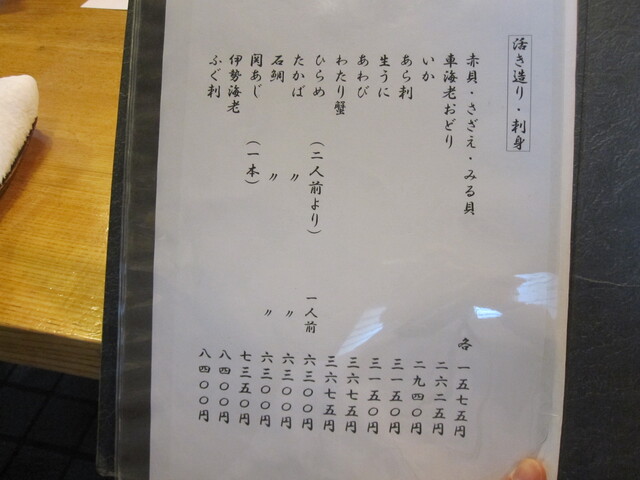 活き造り・刺身
赤貝・さざえ・みる貝 各 一五七五円
車海老おどり 二六二五円
いか 二九四〇円
あら刺 三一五〇円
生うに 三一五〇円
あわび 三六七五円
わたり蟹 三六七五円
ひらめ (二人前より) 一人前 六三〇〇円
たかば 〃 〃 六三〇〇円
石鯛 〃 〃 六三〇〇円
関あじ (一本) 七三五〇円
伊勢海老 八四〇〇円
ふぐ刺 八四〇〇円